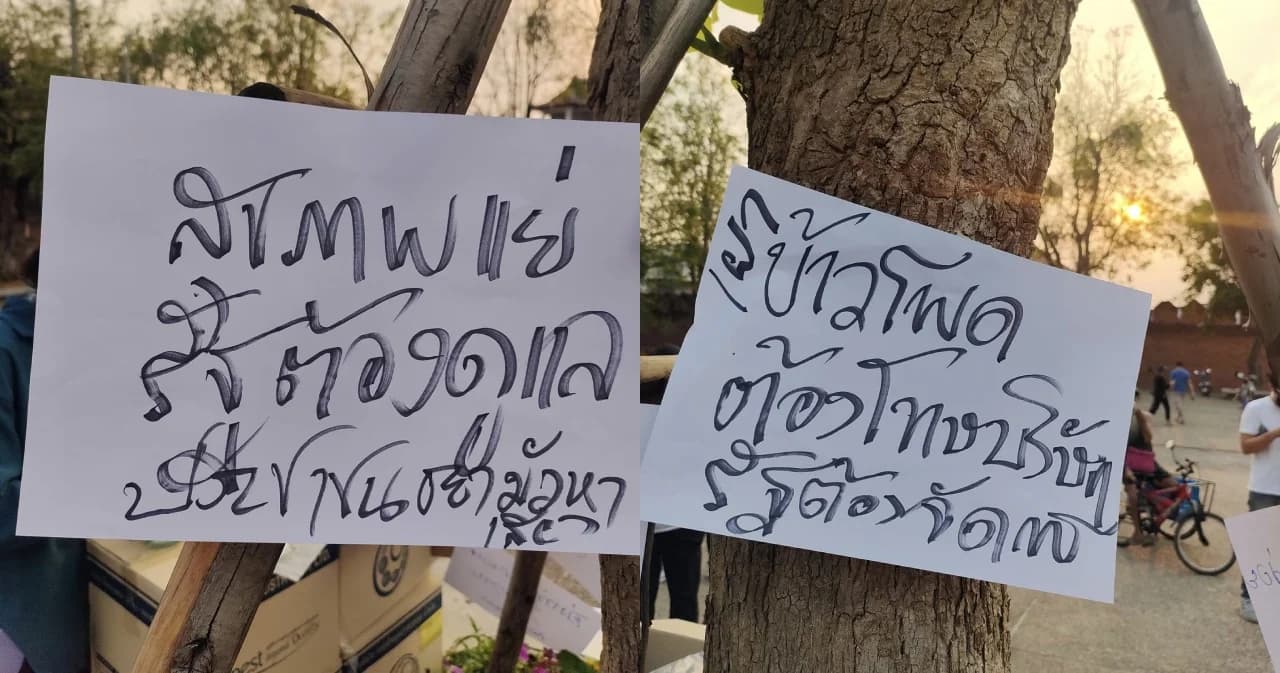 สุขภาพแย่
รัฐต้องดูแล
ประชาชนอย่ามัวหา
เสียง
เผาข้าวโพด
ต้องโทษบริษัท
รัฐต้องจัดการ
est